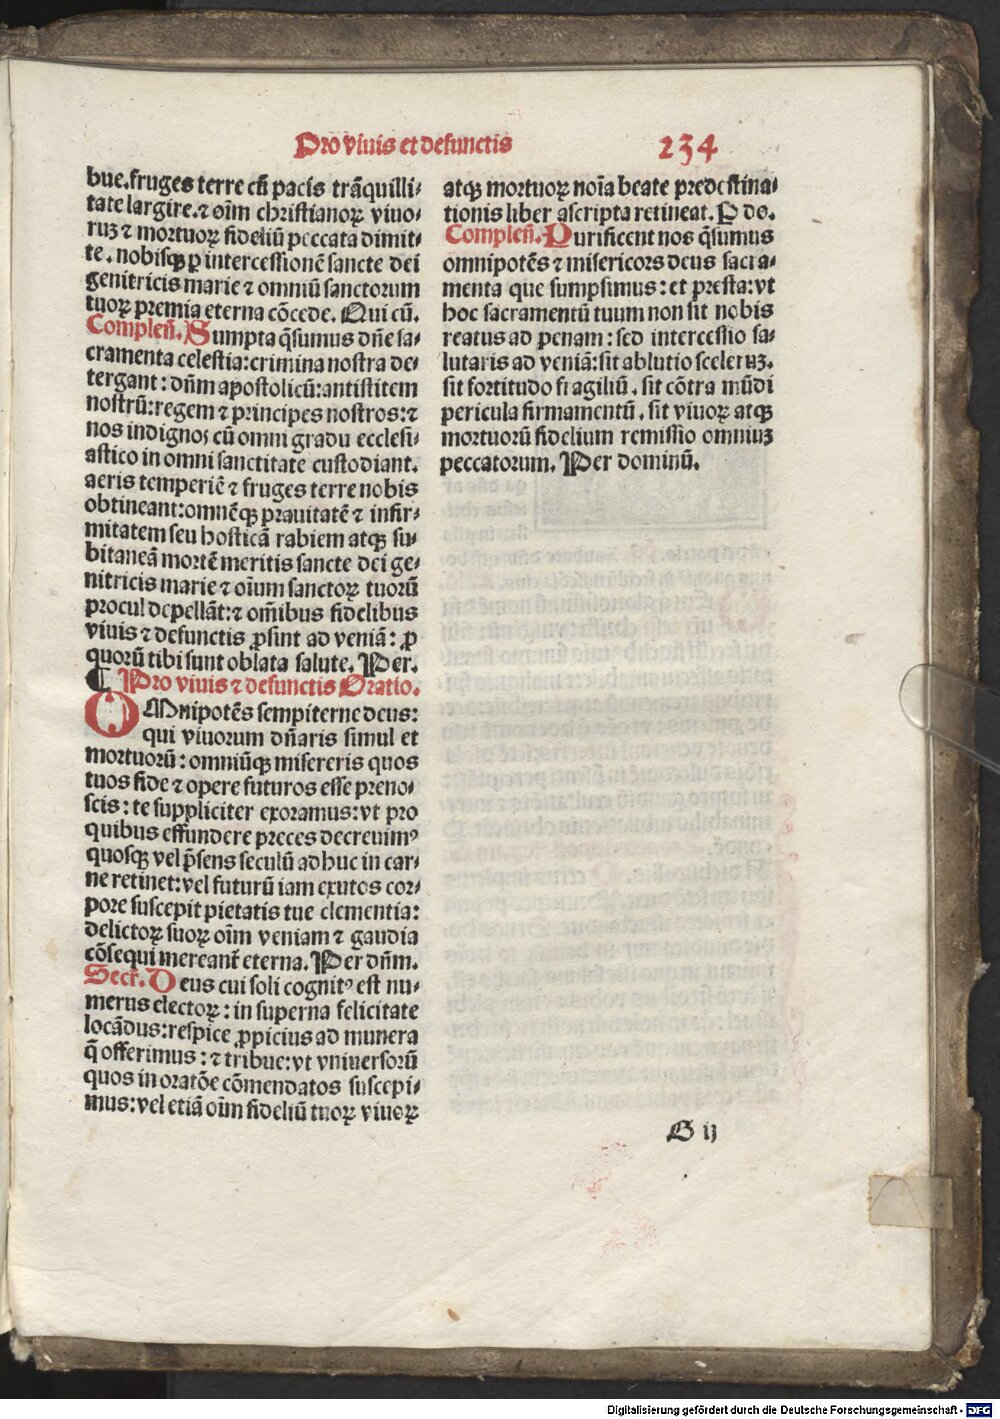 Pro viuis et defunctis 234
bue. fruges terre cū pacis trāquilli⸗
tate largire. ⁊ oīm christianoꝝ viuo⸗
ruꝫ ⁊ mortuoꝝ fideliū peccata dimit⸗
te. nobisqꝫ ꝑ intercessionē sancte dei
genitricis marie ⁊ omniū sanctorum
tuoꝝ premia eterna cōcede. Qui cū.
Compleñ. Sumpta q̄sumus dn̄e sa⸗
cramenta celestia: crimina nostra de⸗
tergant: dn̄m apostolicū: antistitem
nostrū: regem ⁊ principes nostros: ⁊
nos indignos cū omni gradu ecclesi⸗
astico in omni sanctitate custodiant.
aeris temperiē ⁊ fruges terre nobis
obtineant: omnēqꝫ prauitatē ⁊ infir⸗
mitatem seu hosticā rabiem atqꝫ su⸗
bitaneā mortē meritis sancte dei ge⸗
nitricis marie ⁊ oīum sanctoꝝ tuorū
procul depellāt: ⁊ om̄ibus fidelibus
viuis ⁊ defunctis ꝓsint ad veniā: ꝓ
quorū tibi sunt oblata salute. Per.
¶ Pro viuis ⁊ defunctis Oratio.
OMnipotēs sempiterne deus:
qui viuorum dn̄aris simul et
mortuorū: omniūqꝫ misereris quos
tuos fide ⁊ opere futuros esse preno⸗
scis: te suppliciter exoramus: vt pro
quibus effundere preces decreuimꝰ
quosqꝫ vel p̄sens seculū adhuc in car⸗
ne retinet: vel futurū iam exutos cor⸗
pore suscepit pietatis tue clementia:
delictoꝝ suoꝝ oīm veniam ⁊ gaudia
cōsequi mereanť eterna. Per dn̄m.
Secř. Deus cui soli cognitꝰ est nu⸗
merus electoꝝ: in superna felicitate
locādus: respice ꝓpicius ad munera
q̄ offerimus: ⁊ tribue: vt vniuersorū
quos in oratōe cōmendatos suscepi⸗
mus: vel etiā oīm fideliū tuoꝝ viuoꝝ
atqꝫ mortuoꝝ noīa beate predestina⸗
tionis liber ascripta retineat. P do.
Compleñ. Purificent nos q̄sumus
omnipotēs ⁊ misericors deus sacra⸗
menta que sumpsimus: et presta: vt
hoc sacramentū tuum non sit nobis
reatus ad penam: sed intercessio sa⸗
lutaris ad veniā: sit ablutio sceleruꝫ.
sit fortitudo fragiliū. sit cōtra mūdi
pericula firmamentū. sit viuoꝝ atqꝫ
mortuorū fidelium remissio omniuꝫ
peccatorum. Per dominū.
B ij
Digitalisierung gefördert durch die Deutsche Forschungsgemeinschaft - DFG